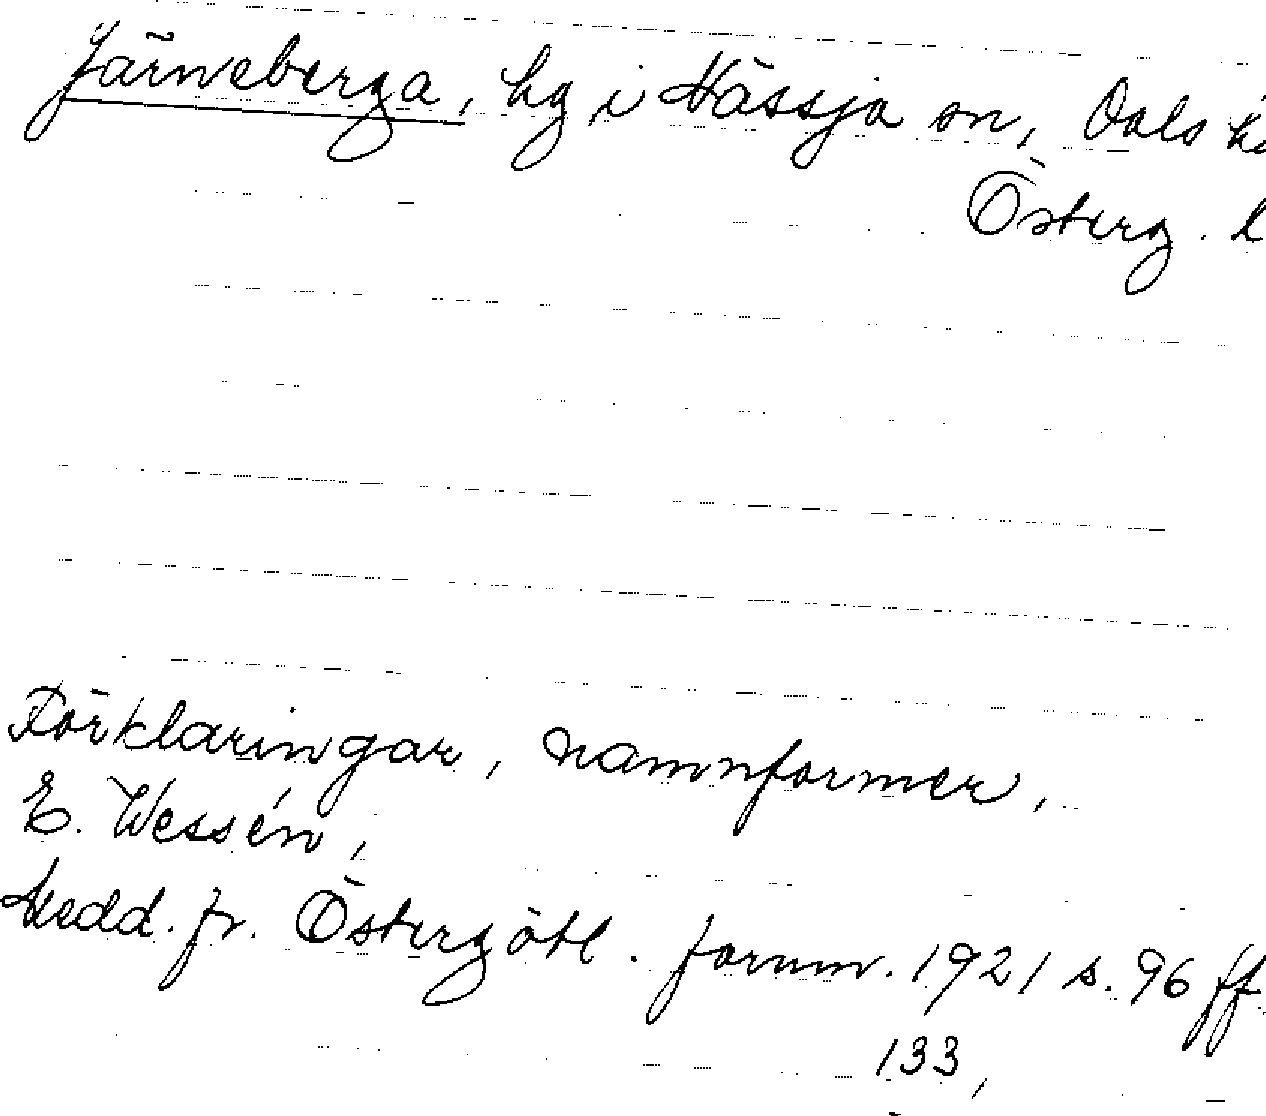 Järneberga, hg i Hässja sn, Dals hd
Österg. l
Förklaringar, namnformer,
E. Wessén,
Medd. fr. Östergötl. fornm. 1921 s. 96 ff.
133,